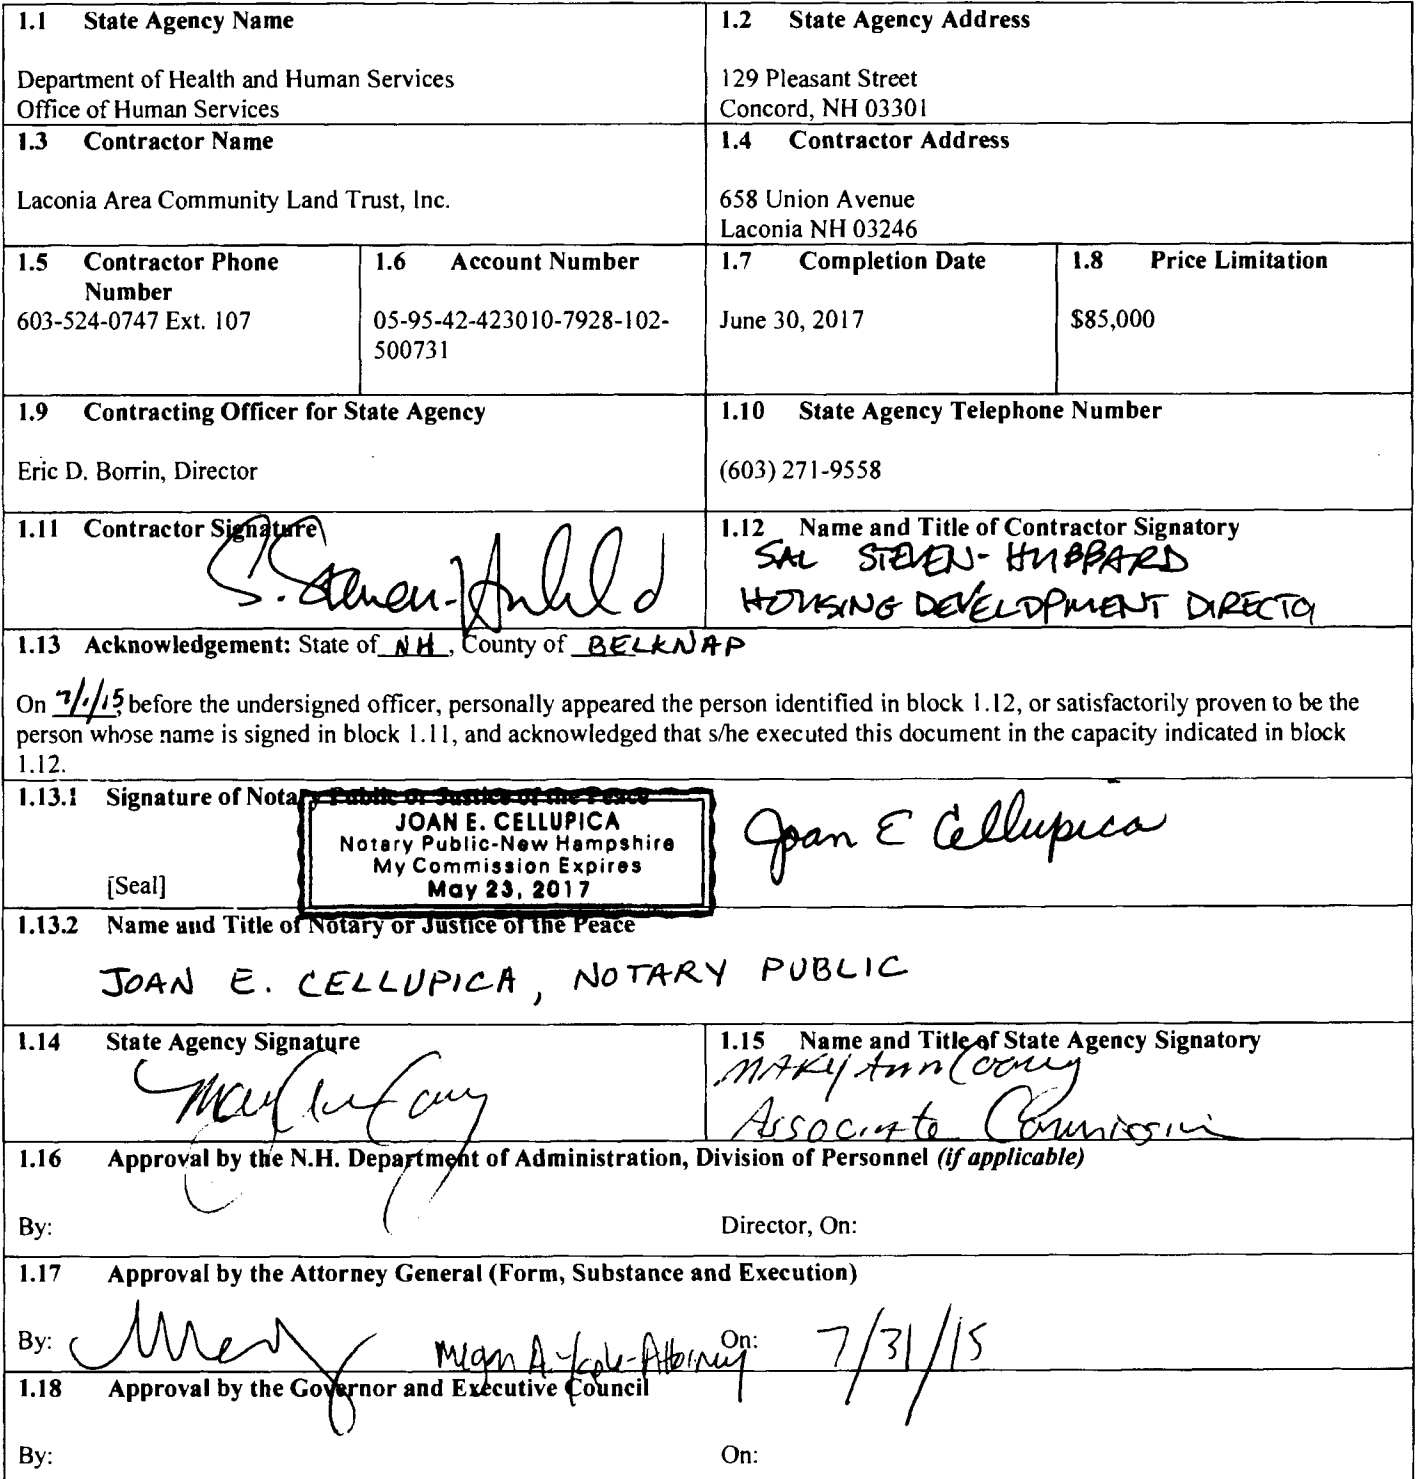 1.1 State Agency Name
Department of Health and Human Services
Office of Human Services
1.2 State Agency Address
129 Pleasant Street
Concord, NH 03301
1.3 Contractor Name
Laconia Area Community Land Trust, Inc.
1.4 Contractor Address
658 Union Avenue
Laconia NH 03246
1.5 Contractor Phone
Number
603-524-0747 Ext. 107
1.6 Account Number
05-95-42-423010-7928-102-
500731
1.7 Completion Date
June 30, 2017
1.8 Price Limitation
$85,000
1.9 Contracting Officer for State Agency
Eric D. Borrin, Director
1.10 State Agency Telephone Number
(603) 271-9558
1.11 Contractor Signature
S. Steven-Hubbard
1.12 Name and Title of Contractor Signatory
SAL STEVEN-HUBBARD
HOUSING DEVELOPMENT DIRECTO
1.13 Acknowledgement: State of NH, County of BELKNAP
On 7/1/15, before the undersigned officer, personally appeared the person identified in block 1.12, or satisfactorily proven to be the
person whose name is signed in block 1.11, and acknowledged that s/he executed this document in the capacity indicated in block
1.12.
1.13.1 Signature of Notary Public or Justice of the Peace
JOAN E. CELLUPICA
Notary Public-New Hampshire
My Commission Expires
May 23, 2017
Joan E Cellupica
[Seal]
1.13.2 Name and Title of Notary or Justice of the Peace
JOAN E. CELLUPICA, NOTARY PUBLIC
1.14 State Agency Signature
1.15 Name and Title of State Agency Signatory
Mary Ann Cooney
Associate Commissioner
1.16 Approval by the N.H. Department of Administration, Division of Personnel (if applicable)
By:
Director, On:
1.17 Approval by the Attorney General (Form, Substance and Execution)
By:
Megan A. Yaple-Attorney
On: 7/31/15
1.18 Approval by the Governor and Executive Council
By:
On: